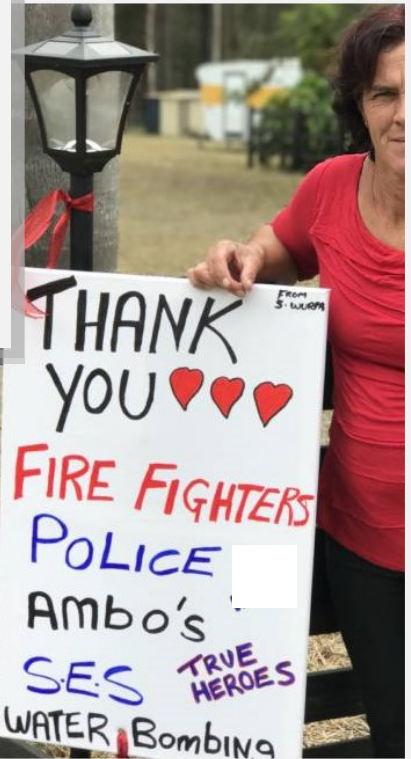 FROM
THANK
YOU
FIRE FIGHTERS
POLICE
AMBO'S
S.E.S
TRUE
HEROES
WATER Bombing